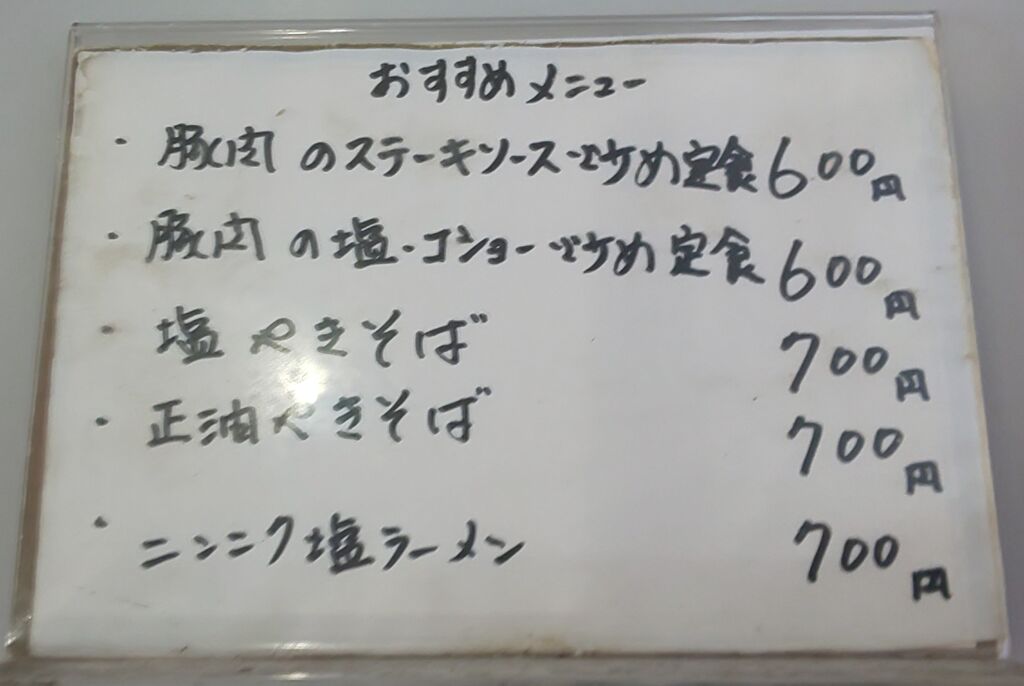 おすすめメニュー
・豚肉のステーキソースいため定食600円
・豚肉の塩・コショーいため定食600円
・塩やきそば 700円
・正油やきそば 700円
・ニンニク塩ラーメン 700円